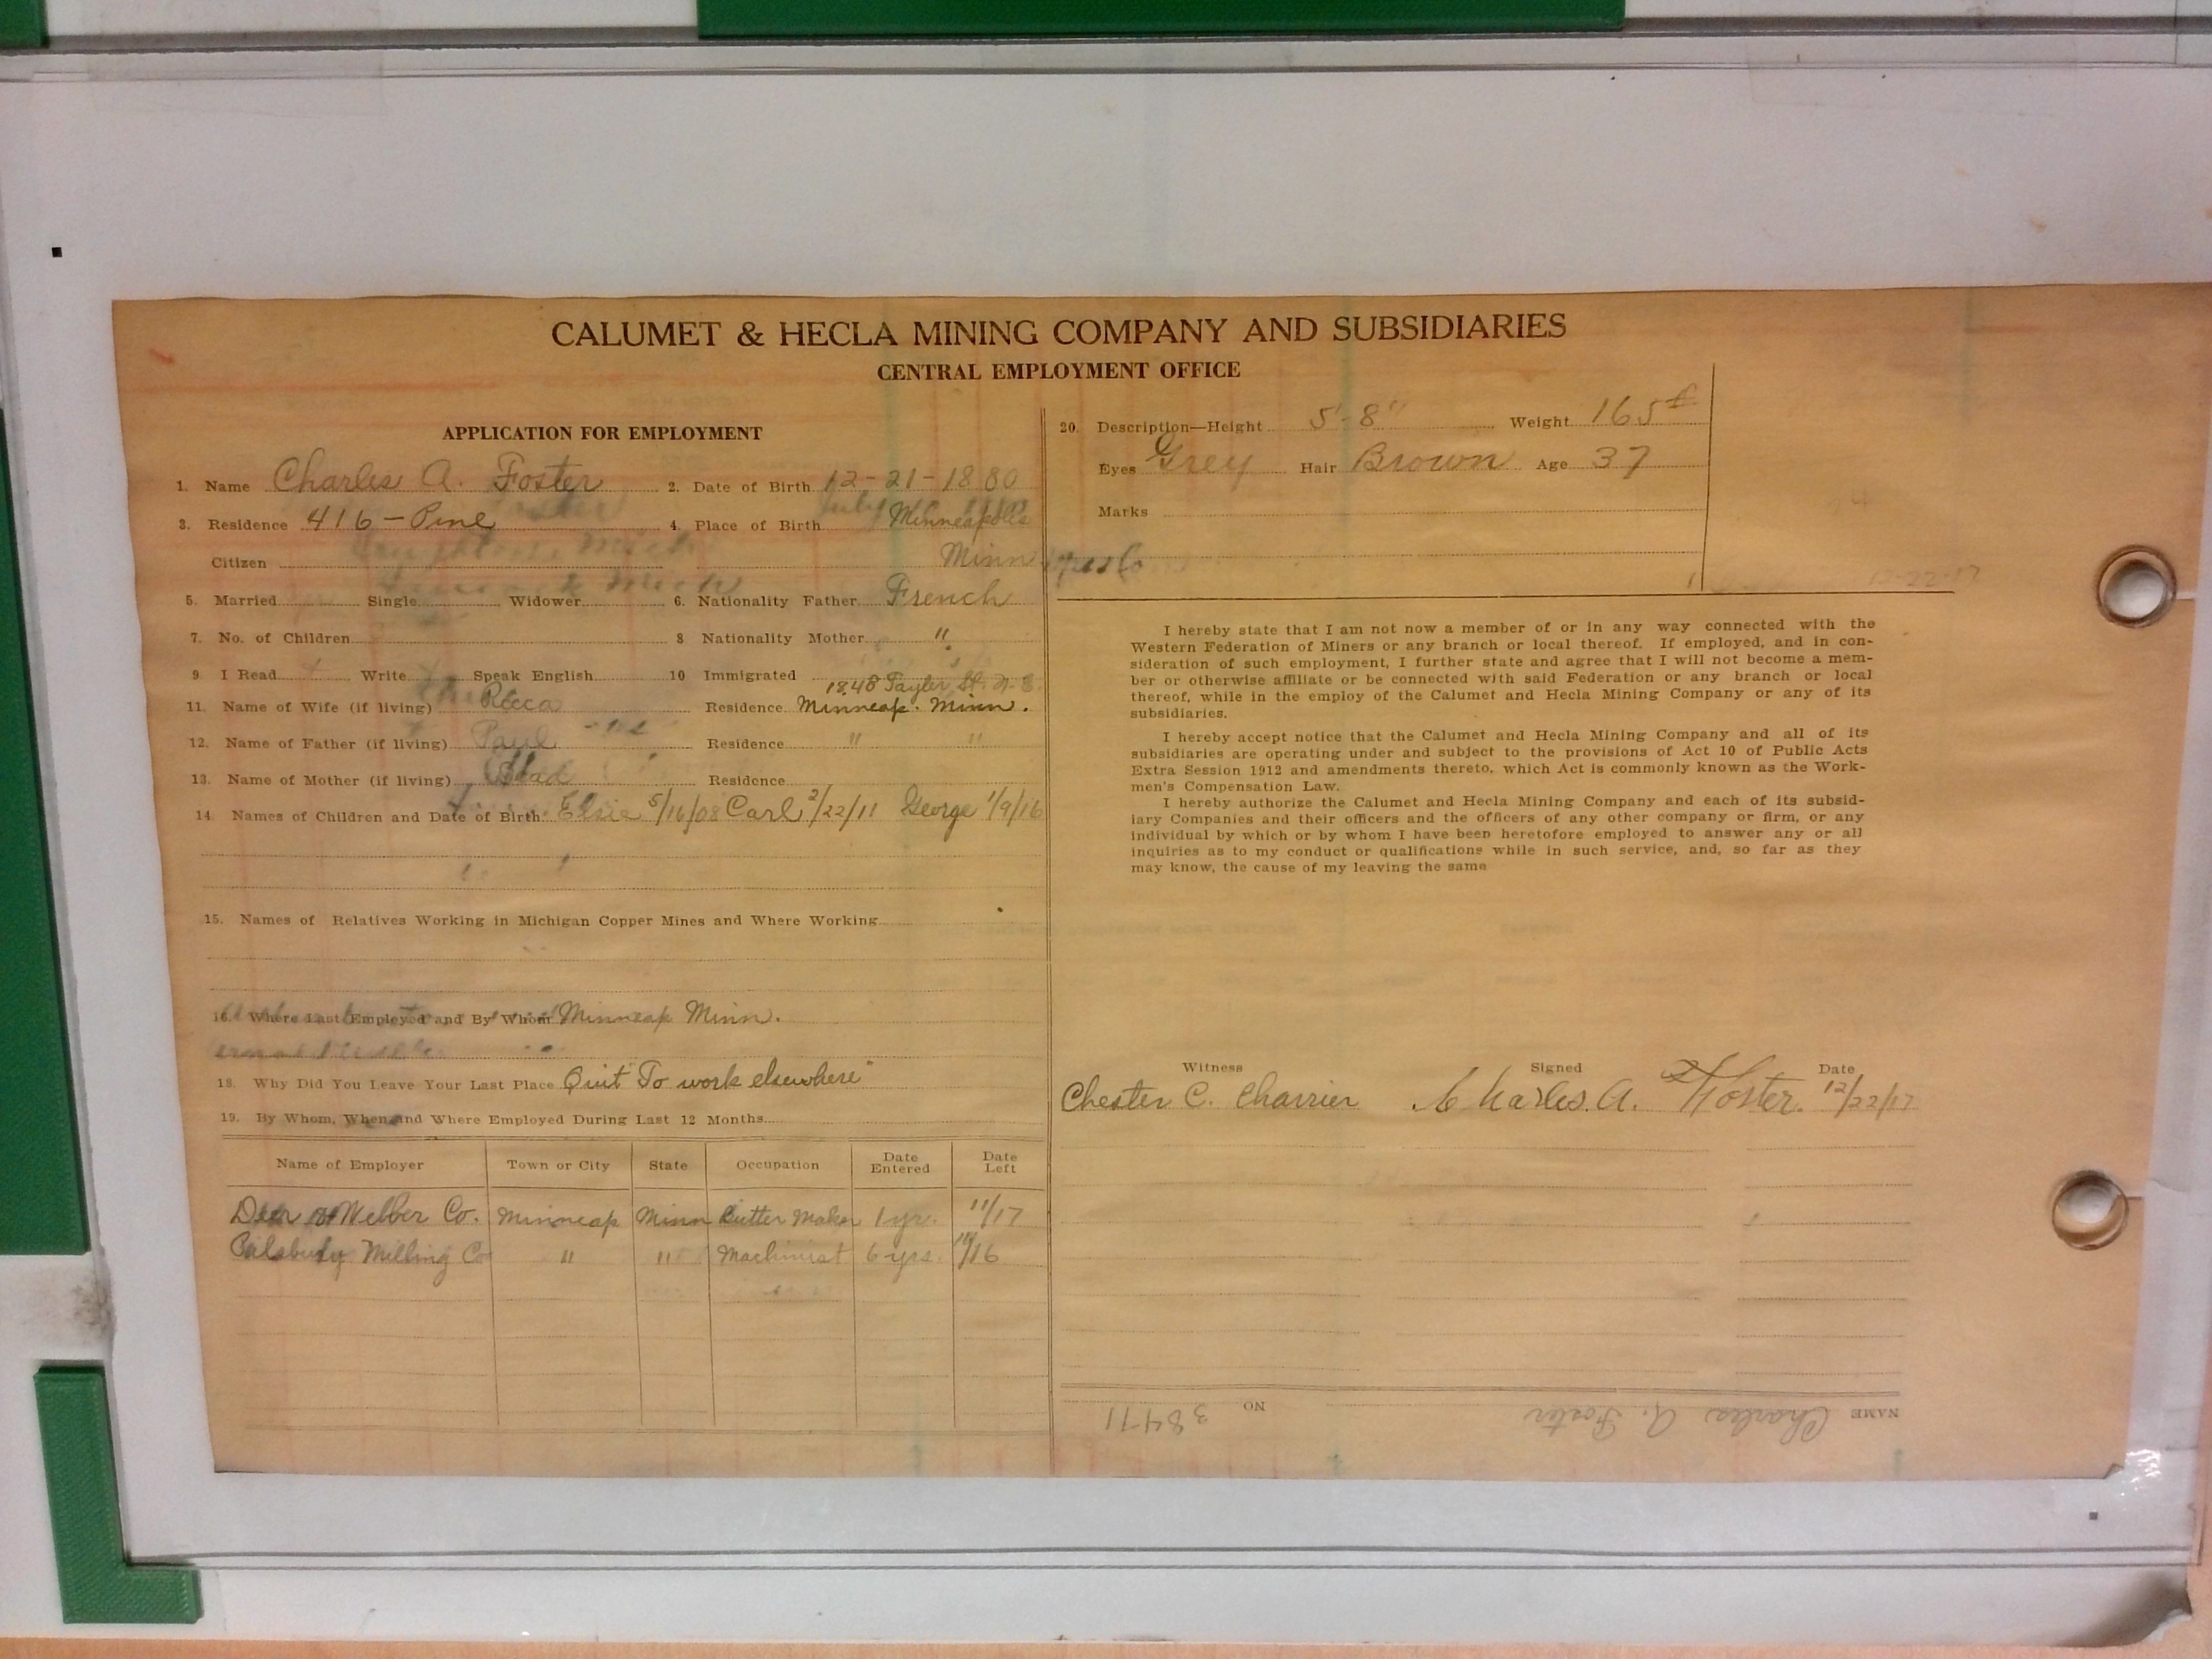 CALUMET & HECLA MINING COMPANY AND SUBSIDIARIES
CENTRAL EMPLOYMENT OFFICE
APPLICATION FOR EMPLOYMENT
1. Name Charles A. Foster 2. Date of Birth 12-21-1880
3. Residence 416 - Pine 4. Place of Birth Minneapolis
Citizen Minn
5. Married Single Widower 6. Nationality Father French
7. No. of Children 8 Nationality Mother "
9 I Read Write Speak English 10 Immigrated
1848 Tayler St. N. E.
11. Name of Wife (if living) Residence Minneap. Minn.
12. Name of Father (if living) Paul Residence " "
13. Name of Mother (if living) Residence
14. Names of Children and Date of Birth Elsie 5/16/08 Carl 2/22/11 George 1/9/16
15. Names of Relatives Working in Michigan Copper Mines and Where Working
16. Where Last Employed and By Whom Minneap Minn.
18. Why Did You Leave Your Last Place Quit "To work elsewhere"
19. By Whom, When and Where Employed During Last 12 Months
Name of Employer Town or City State Occupation Date Entered Date Left
Webber Co. Minneap Minn Butter Maker 1 yr. 11/17
Milling Co " " Machinist 6 yrs. /16
20. Description—Height 5'-8" Weight 165
Eyes Grey Hair Brown Age 37
Marks
12-22-17
I hereby state that I am not now a member of or in any way connected with the
Western Federation of Miners or any branch or local thereof. If employed, and in con-
sideration of such employment, I further state and agree that I will not become a mem-
ber or otherwise affiliate or be connected with said Federation or any branch or local
thereof, while in the employ of the Calumet and Hecla Mining Company or any of its
subsidiaries.
I hereby accept notice that the Calumet and Hecla Mining Company and all of its
subsidiaries are operating under and subject to the provisions of Act 10 of Public Acts
Extra Session 1912 and amendments thereto, which Act is commonly known as the Work-
men's Compensation Law.
I hereby authorize the Calumet and Hecla Mining Company and each of its subsid-
iary Companies and their officers and the officers of any other company or firm, or any
individual by which or by whom I have been heretofore employed to answer any or all
inquiries as to my conduct or qualifications while in such service, and, so far as they
may know, the cause of my leaving the same
Witness Signed Date
Chester C. Charrier Charles. A. Foster. 12/22/17
NAME Charles A. Foster NO 38471